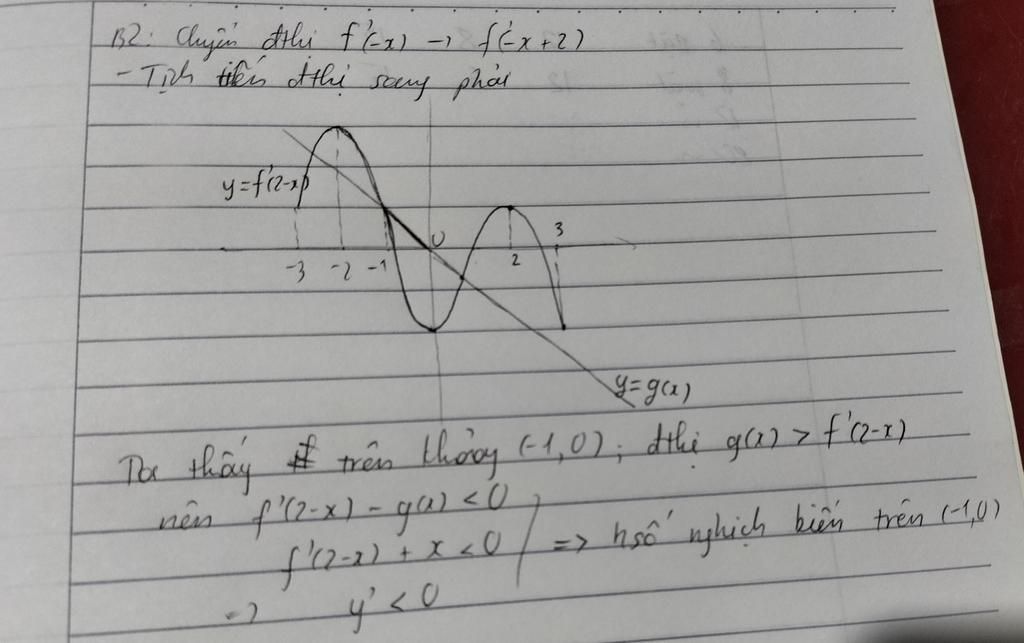 B2: Chuyển đthị f'(-x) → f'(-x+2)
- Tịnh tiến đthị sang phải
y=f'(2-x)
0
3
-3 -2 -1 2
y=g(x)
Ta thấy trên khoảng (-1,0); đthị g(x) > f'(2-x)
nên f'(2-x) - g(x) < 0
f'(2-x) + x < 0 => hsố nghịch biến trên (-1,0)
=> y' < 0